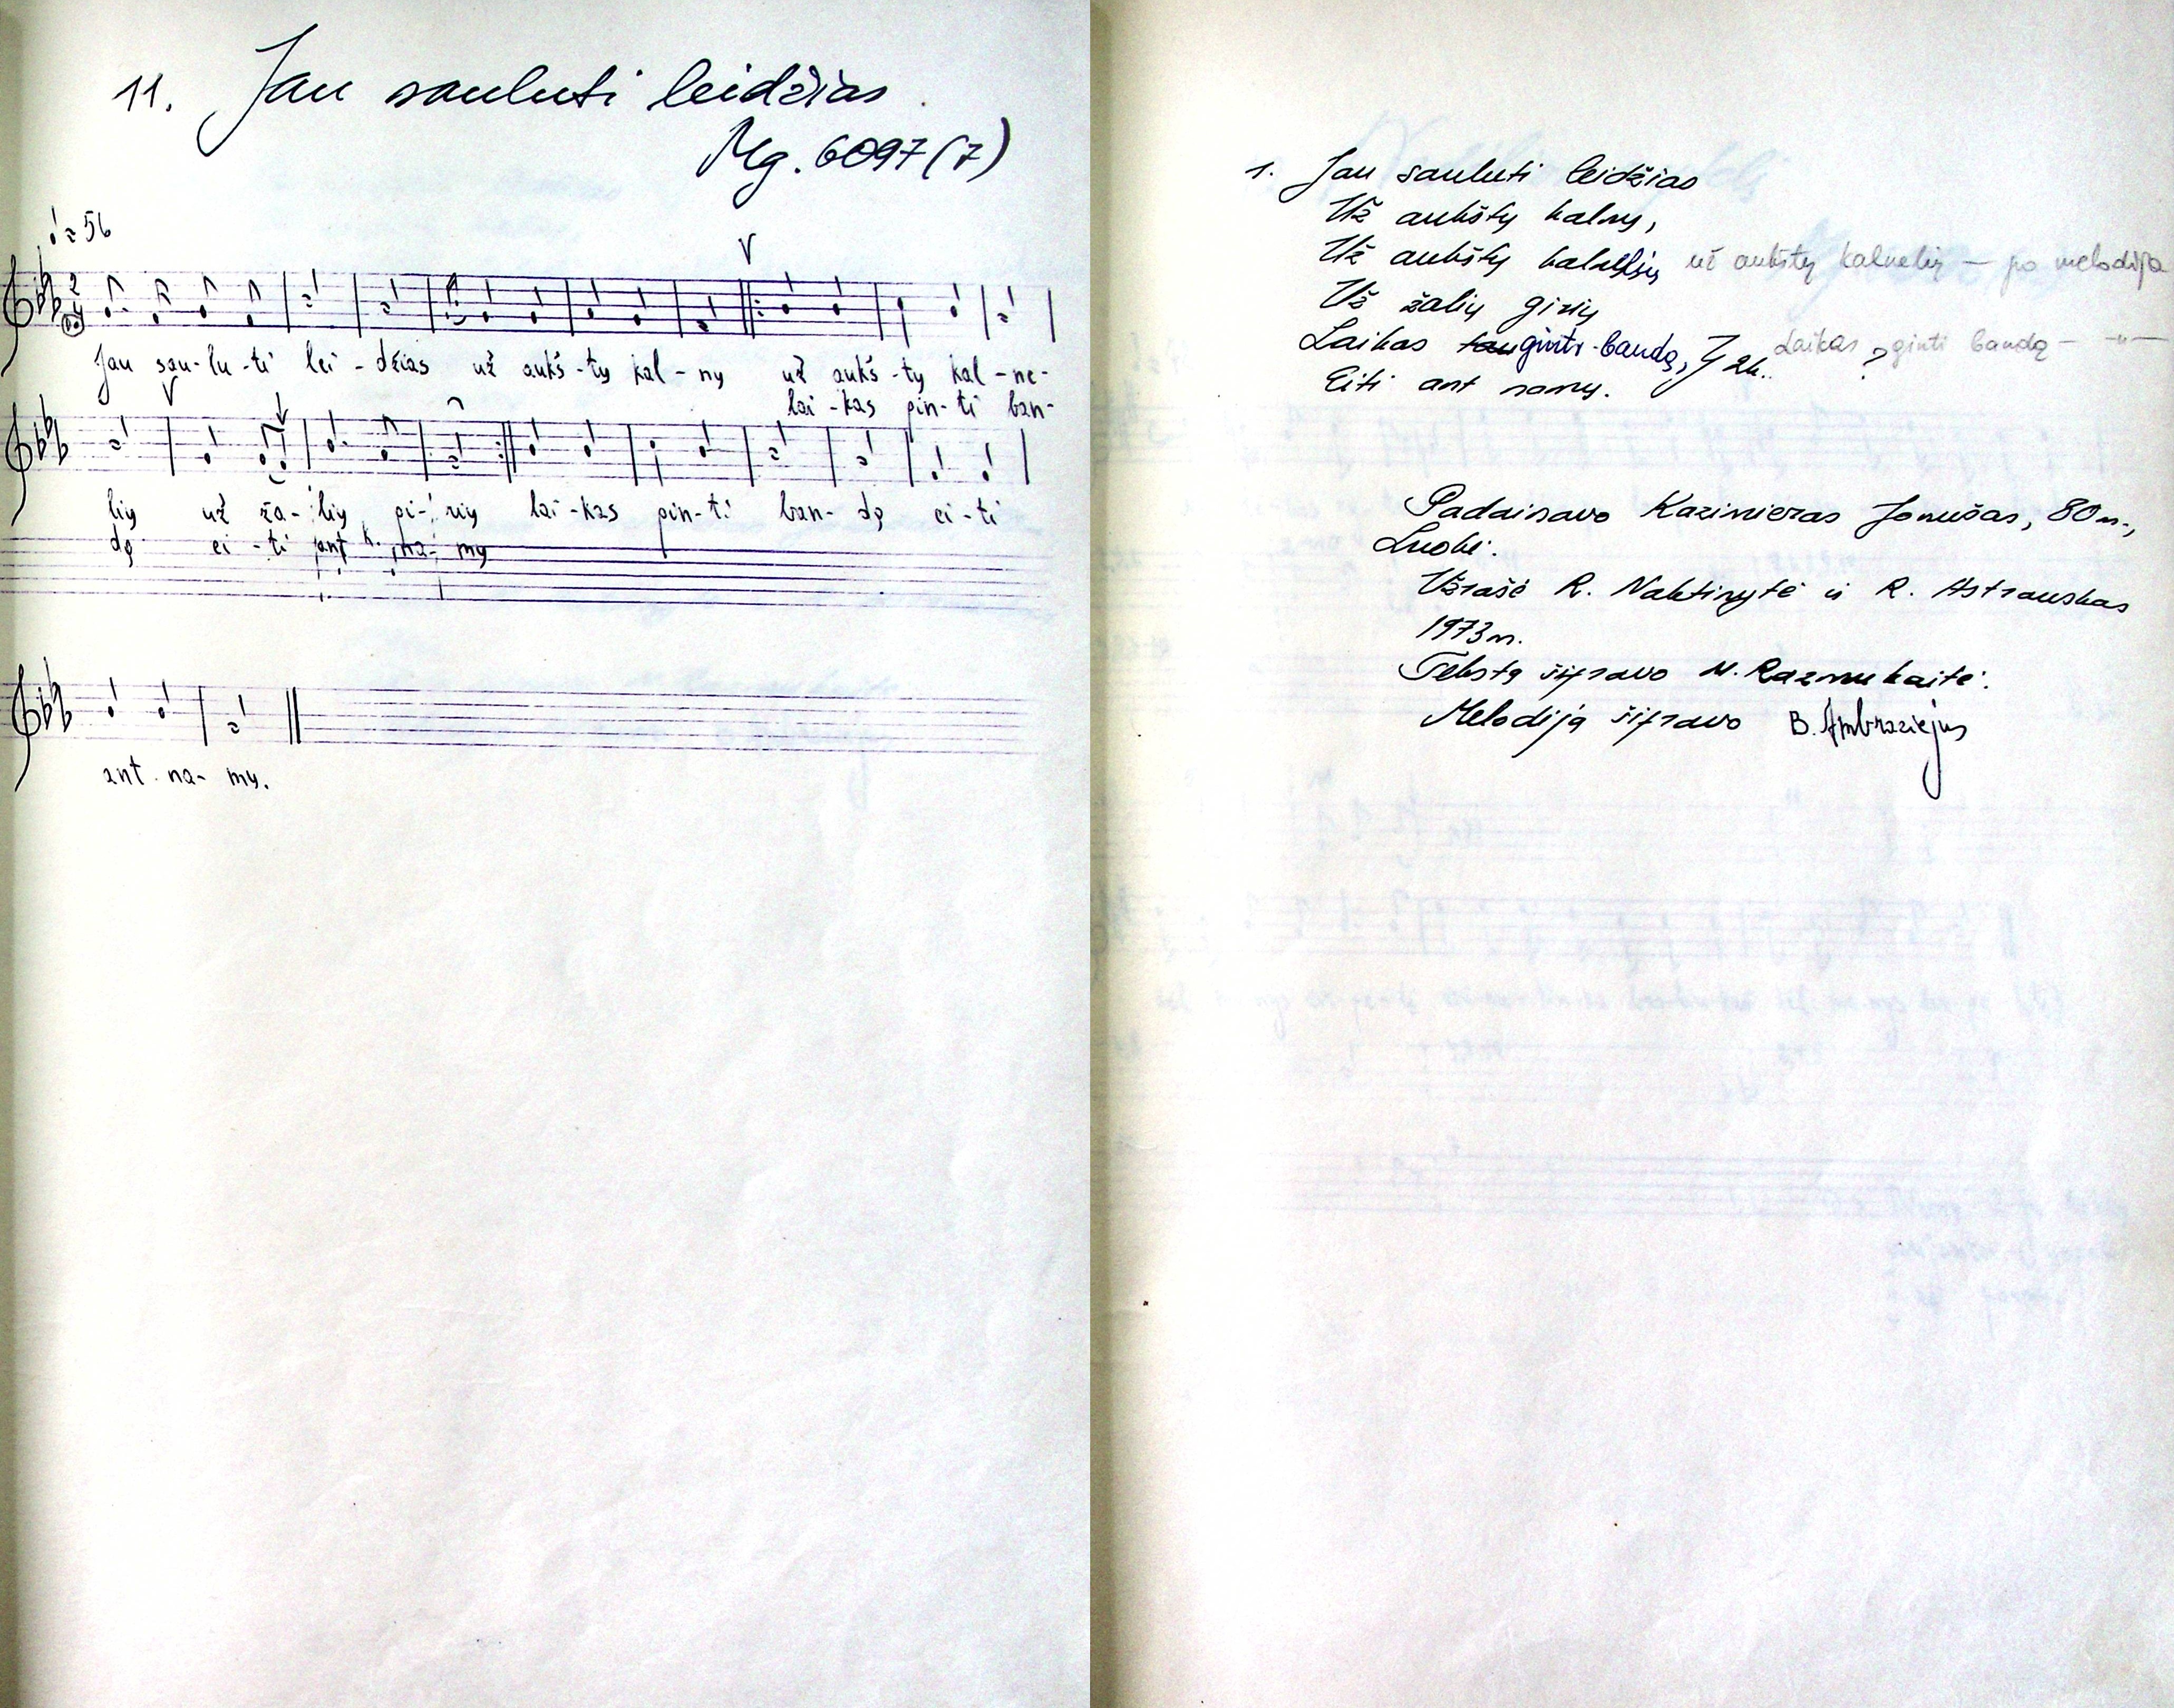 11. Jau sauluti leidžias.
Mg. 6097 (7)
♩ = 56
V
2
4
Jau sau-lu-ti lei-džias už aukš-tų kal-nų už aukš-tų kal-ne-
lai-kas gin-ti ban-
V
lių už ža-lių gi-rių lai-kas gin-ti ban-dą ei-ti
dą ei-ti ant na-mų
ant na-mų.
1. Jau sauluti leidžias
Už aukštų kalnų,
Už aukštų kalnelių už aukštų kalnelių – po melodija
Už žalių girių
Laikas ginti bandą, } 2k. Laikas ? ginti bandą – –"–
Eiti ant namų.
Padainavo Kazimieras Jonušas, 80 m.,
Luokė.
Užrašė R. Naktinytė ir R. Astrauskas
1973 m.
Tekstą šifravo N. Razmukaitė.
Melodiją šifravo B. Ambraziejus